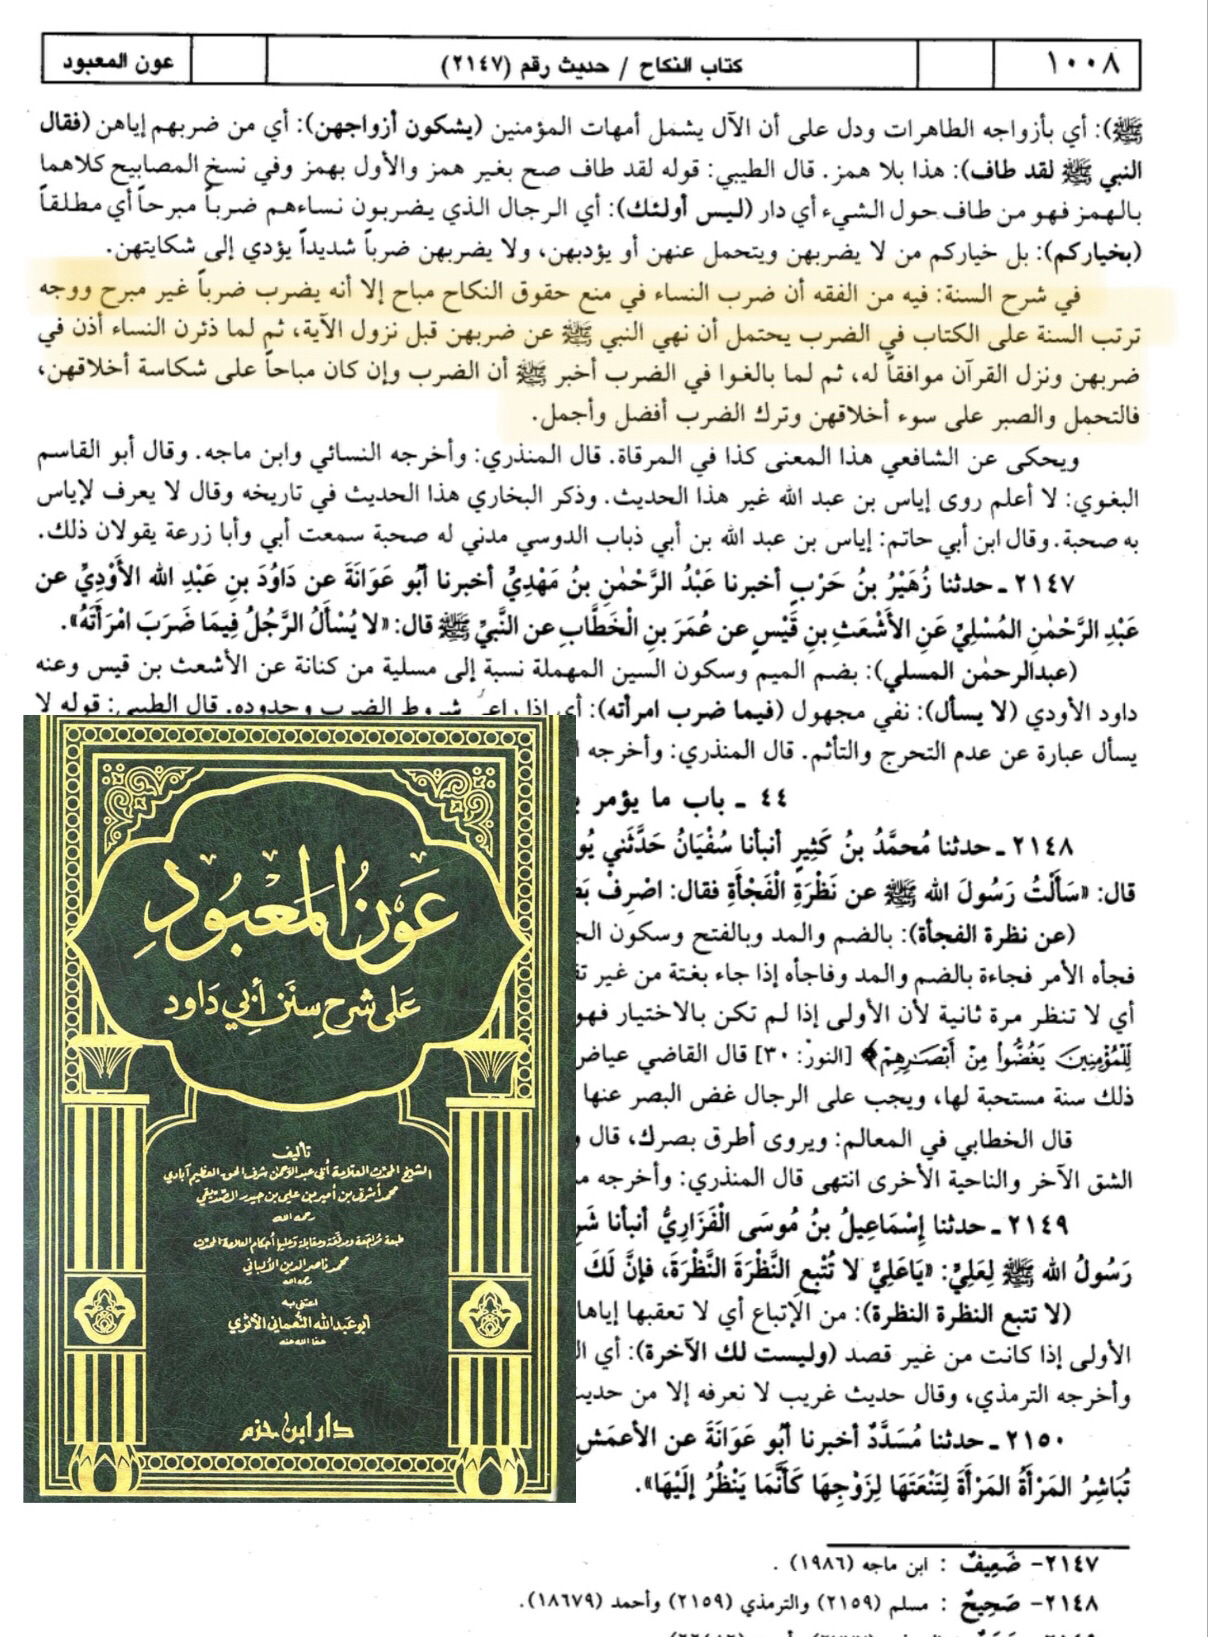 ١٠٠٨
كتاب النكاح / حديث رقم (٢١٤٧)
عون المعبود
ﷺ): أي بأزواجه الطاهرات ودل على أن الآل يشمل أمهات المؤمنين (يشكون أزواجهن): أي من ضربهم إياهن (فقال
النبي ﷺ لقد طاف): هذا بلا همز. قال الطيبي: قوله لقد طاف صح بغير همز والأول بهمز وفي نسخ المصابيح كلاهما
بالهمز فهو من طاف حول الشيء أي دار (ليس أولئك): أي الرجال الذي يضربون نساءهم ضرباً مبرحاً أي مطلقاً
(بخياركم): بل خياركم من لا يضربهن ويتحمل عنهن أو يؤدبهن، ولا يضربهن ضرباً شديداً يؤدي إلى شكايتهن.
في شرح السنة: فيه من الفقه أن ضرب النساء في منع حقوق النكاح مباح إلا أنه يضرب ضرباً غير مبرح ووجه
ترتب السنة على الكتاب في الضرب يحتمل أن نهي النبي ﷺ عن ضربهن قبل نزول الآية، ثم لما ذئرن النساء أذن في
ضربهن ونزل القرآن موافقاً له، ثم لما بالغوا في الضرب أخبر ﷺ أن الضرب وإن كان مباحاً على شكاسة أخلاقهن،
فالتحمل والصبر على سوء أخلاقهن وترك الضرب أفضل وأجمل.
ويحكى عن الشافعي هذا المعنى كذا في المرقاة. قال المنذري: وأخرجه النسائي وابن ماجه. وقال أبو القاسم
البغوي: لا أعلم روى إياس بن عبد الله غير هذا الحديث. وذكر البخاري هذا الحديث في تاريخه وقال لا يعرف لإياس
به صحبة. وقال ابن أبي حاتم: إياس بن عبد الله بن أبي ذباب الدوسي مدني له صحبة سمعت أبي وأبا زرعة يقولان ذلك.
٢١٤٧ ـ حدثنا زُهَيْرُ بنُ حَرْبٍ أخبرنا عَبْدُ الرَّحْمٰنِ بنُ مَهْدِيٍّ أخبرنا أبُو عَوَانَةَ عن دَاوُدَ بنِ عَبْدِ الله الأَوْدِيِّ عن
عَبْدِ الرَّحْمٰنِ المُسْلِيِّ عَنِ الأَشْعَثِ بنِ قَيْسٍ عن عُمَرَ بنِ الْخَطَّابِ عن النَّبيِّ ﷺ قال: «لا يُسْأَلُ الرَّجُلُ فِيمَا ضَرَبَ امْرَأَتَهُ».
(عبدالرحمٰن المسلي): بضم الميم وسكون السين المهملة نسبة إلى مسلية من كنانة عن الأشعث بن قيس وعنه
داود الأودي (لا يسأل): نفي مجهول (فيما ضرب امرأته): أي إذا راعى شروط الضرب وحدوده. قال الطيبي: قوله لا
يسأل عبارة عن عدم التحرج والتأثم. قال المنذري: وأخرجه
٤٤ ـ باب ما يؤمر
٢١٤٨ ـ حدثنا مُحمَّدُ بنُ كَثِيرٍ أنبأنا سُفْيَانُ حَدَّثَني
قال: «سَأَلْتُ رَسُولَ الله ﷺ عن نَظْرَةِ الْفَجْأَةِ فقال: اصْرِفْ
(عن نظرة الفجأة): بالضم والمد وبالفتح وسكون
فجأه الأمر فجاءة بالضم والمد وفاجأه إذا جاء بغتة من غير
أي لا تنظر مرة ثانية لأن الأولى إذا لم تكن بالاختيار فهو
لِّلْمُؤْمِنِينَ يَغُضُّوا مِنْ أَبْصَارِهِمْ﴾ [النور: ٣٠] قال القاضي عياض
ذلك سنة مستحبة لها، ويجب على الرجال غض البصر عنها
قال الخطابي في المعالم: ويروى أطرق بصرك، قال
الشق الآخر والناحية الأخرى انتهى قال المنذري: وأخرجه
٢١٤٩ ـ حدثنا إسْمَاعِيلُ بنُ مُوسَى الْفَزَارِيُّ أنبأنا
رَسُولُ الله ﷺ لِعَلِيٍّ: «يَاعَلِيُّ لا تُتْبِعِ النَّظْرَةَ النَّظْرَةَ، فإنَّ لَكَ
(لا تتبع النظرة النظرة): من الإتباع أي لا تعقبها إياها
الأولى إذا كانت من غير قصد (وليست لك الآخرة): أي
وأخرجه الترمذي، وقال حديث غريب لا نعرفه إلا من
٢١٥٠ ـ حدثنا مُسَدَّدٌ أخبرنا أبُو عَوَانَةَ عن الأعمَشِ
تُبَاشِرُ المَرْأَةُ المَرْأَةَ لِتَنْعَتَهَا لِزَوْجِهَا كَأَنَّمَا يَنْظُرُ إلَيْهَا».
٢١٤٧- ضَعِيفٌ : ابن ماجه (١٩٨٦) .
٢١٤٨- صَحِيحٌ : مسلم (٢١٥٩) والترمذي (٢١٥٩) وأحمد (١٨٦٧٩).
عَون المَعْبُود
عَلى شرح سنن أبي دَاود
تأليف
الشيخ المحدث العلامة أبي عبد الرحمن شرف الحق العظيم آبادي
محمد أشرف بن أمير بن علي بن حيدر الصديقي
رحمه الله
طبعة مراجعة ومرقمة ومقابلة وعليها أحكام العلامة المحدث
محمد ناصر الدين الألباني
رحمه الله
اعتنى به
أبو عبد الله النعماني الأثري
عفا الله عنه
دار ابن حزم